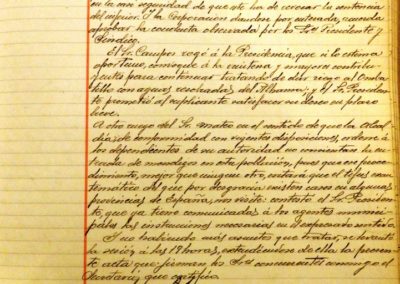 en la casi seguridad de que ate ha de revocar la sentencia
del inferior. Y la Corporacion dandose por enterada, acuerda
aprobar la conducta observada por los Sres Presidente y
Sindico.
El Sr. Campos rogó á la Presidencia, que si lo estima
oportuno, convoque á la reunion y mayores contribu-
yentes para continuar tratando de dar riego al
con aguas del y el Sr. Presiden-
te prometió al suplicante satisfacer su deseo en plazo
breve.
A otro ruego del Sr. Matea en el sentido de que la Alcal-
dia de conformidad con vigentes disposiciones, ordene á
los dependientes de su autoridad no consientan la en-
trada de mendigos en esta poblacion, pues que ese proce-
dimiento, mejor que ninguno otro, evitará que el tifus exan-
tematico del que por desgracia existen casos en algunas
provincias de España, nos visite: contestó el Sr. Presiden-
te, que ya tiene comunicadas á los agentes munici-
pales las instrucciones necesarias en el expresado sentido.
Y no habiendo mas asuntos que tratar, se levantó
la sesión á las 19 horas, extendiendose de ella la presen-
te acta que firman los Sres concurrentes conmigo el
Secretario, que certifico.